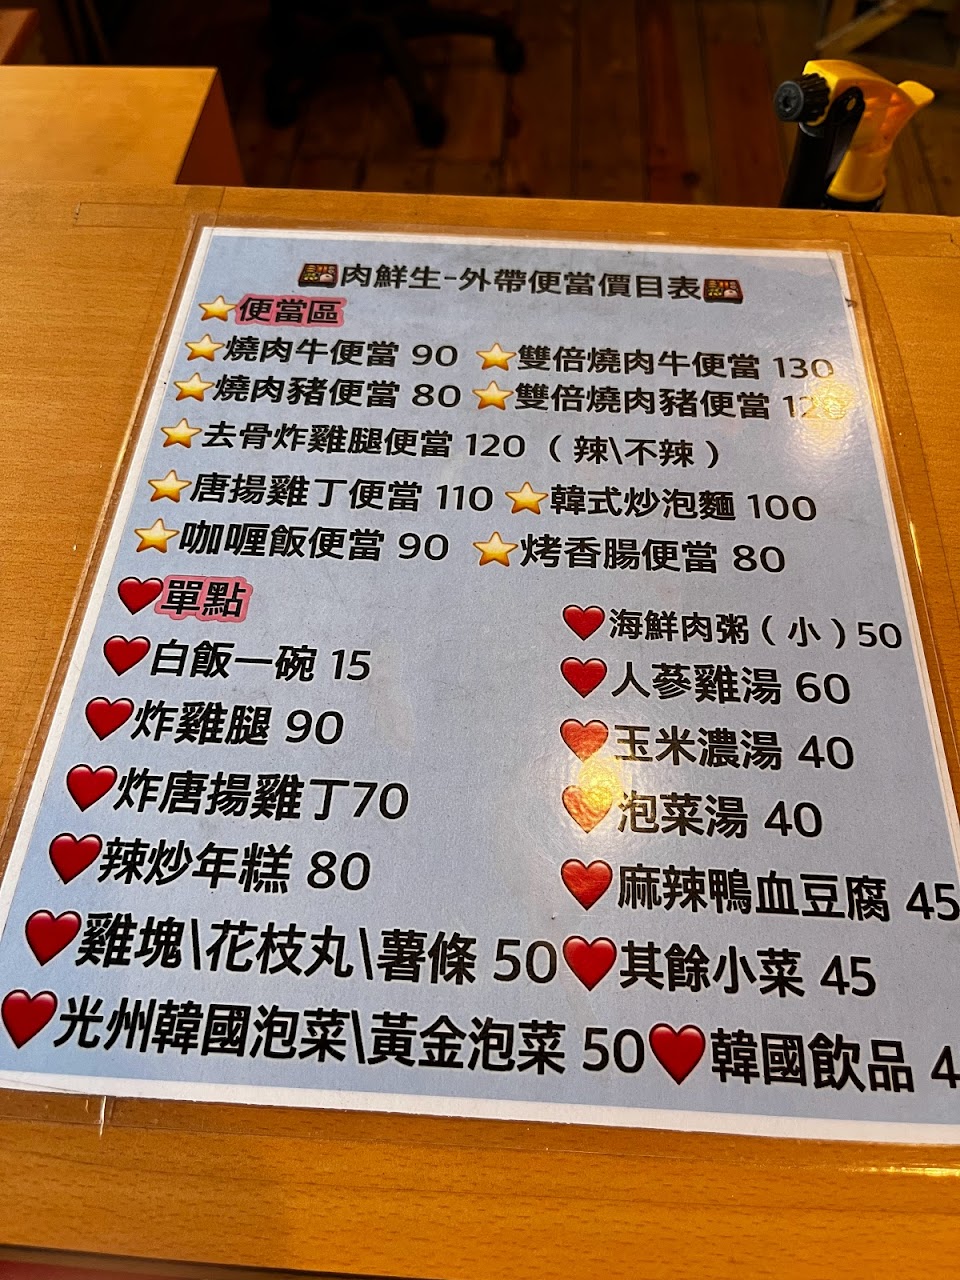 🍱肉鮮生-外帶便當價目表🍱
⭐便當區
⭐燒肉牛便當 90 ⭐雙倍燒肉牛便當 130
⭐燒肉豬便當 80 ⭐雙倍燒肉豬便當
⭐去骨炸雞腿便當 120 （辣\不辣）
⭐唐揚雞丁便當 110 ⭐韓式炒泡麵 100
⭐咖喱飯便當 90 ⭐烤香腸便當 80
❤️單點
❤️海鮮肉粥（小）50
❤️白飯一碗 15 ❤️人蔘雞湯 60
❤️炸雞腿 90 ❤️玉米濃湯 40
❤️炸唐揚雞丁70 ❤️泡菜湯 40
❤️辣炒年糕 80 ❤️麻辣鴨血豆腐 45
❤️雞塊\花枝丸\薯條 50❤️其餘小菜 45
❤️光州韓國泡菜\黃金泡菜 50❤️韓國飲品